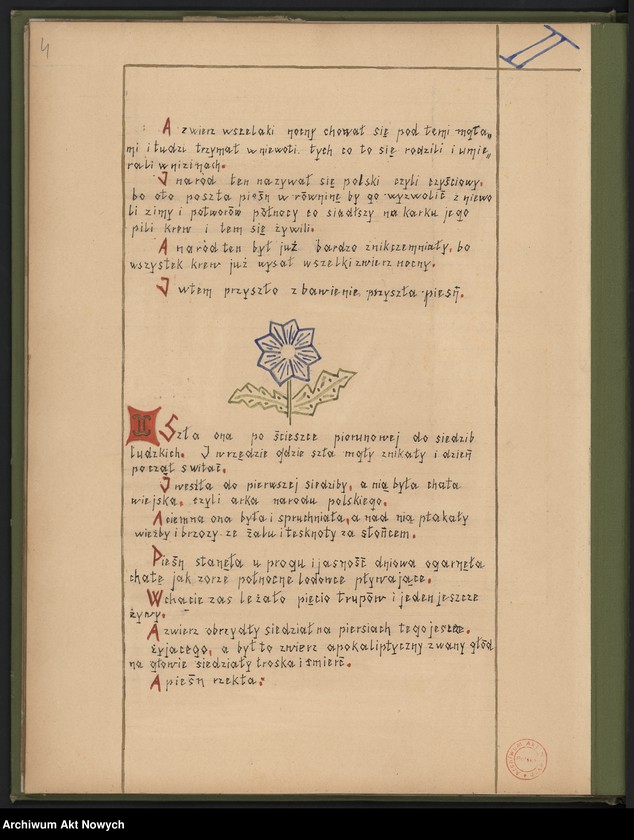 4
II
A zwierz wszelaki nocny chował się pod temi mgła„
mi i ludzi trzymał w niewoli tych co to się rodzili i umie„
rali w nizinach.
I naród ten nazywał się polski czyli czyścowy,
bo oto poszła pieśń w równinę by go wyzwolić z niewo
li zimy i potworów północy co siadłszy na karku jego
pili krew i tem się żywili.
A naród ten był już bardzo znikszemniały, bo
wszystek krew już wysał wszelki zwierz nocny.
I wtem przyszło zbawienie, przyszła pieśń.
II
Szła ona po ścieszce piorunowej do siedzib
ludzkich. I wrzędzie gdzie szła mgły znikały i dzień
począł switać.
I weszła do pierwszej siedziby, a nią była chata
wiejska, czyli arka narodu polskiego.
A ciemna ona była i spruchniała, a nad nią płakały
wieżby i brzozy ze żalu i tesknoty za słońcem.
Pieśń stanęła u progu i jasność dniowa ogarnęła
chatę jak zorze północne lodowce pływające.
W chacie zas leżało pięcio trupów i jeden jeszcze
żywy.
A zwierz obrzydły siedział na piersiach tego jeszcze
żyjącego, a był to zwierz apokaliptyczny zwany głód
na głowie siedziały troska i smierć.
A pieśń rzekła:
Archiwum Akt Nowych